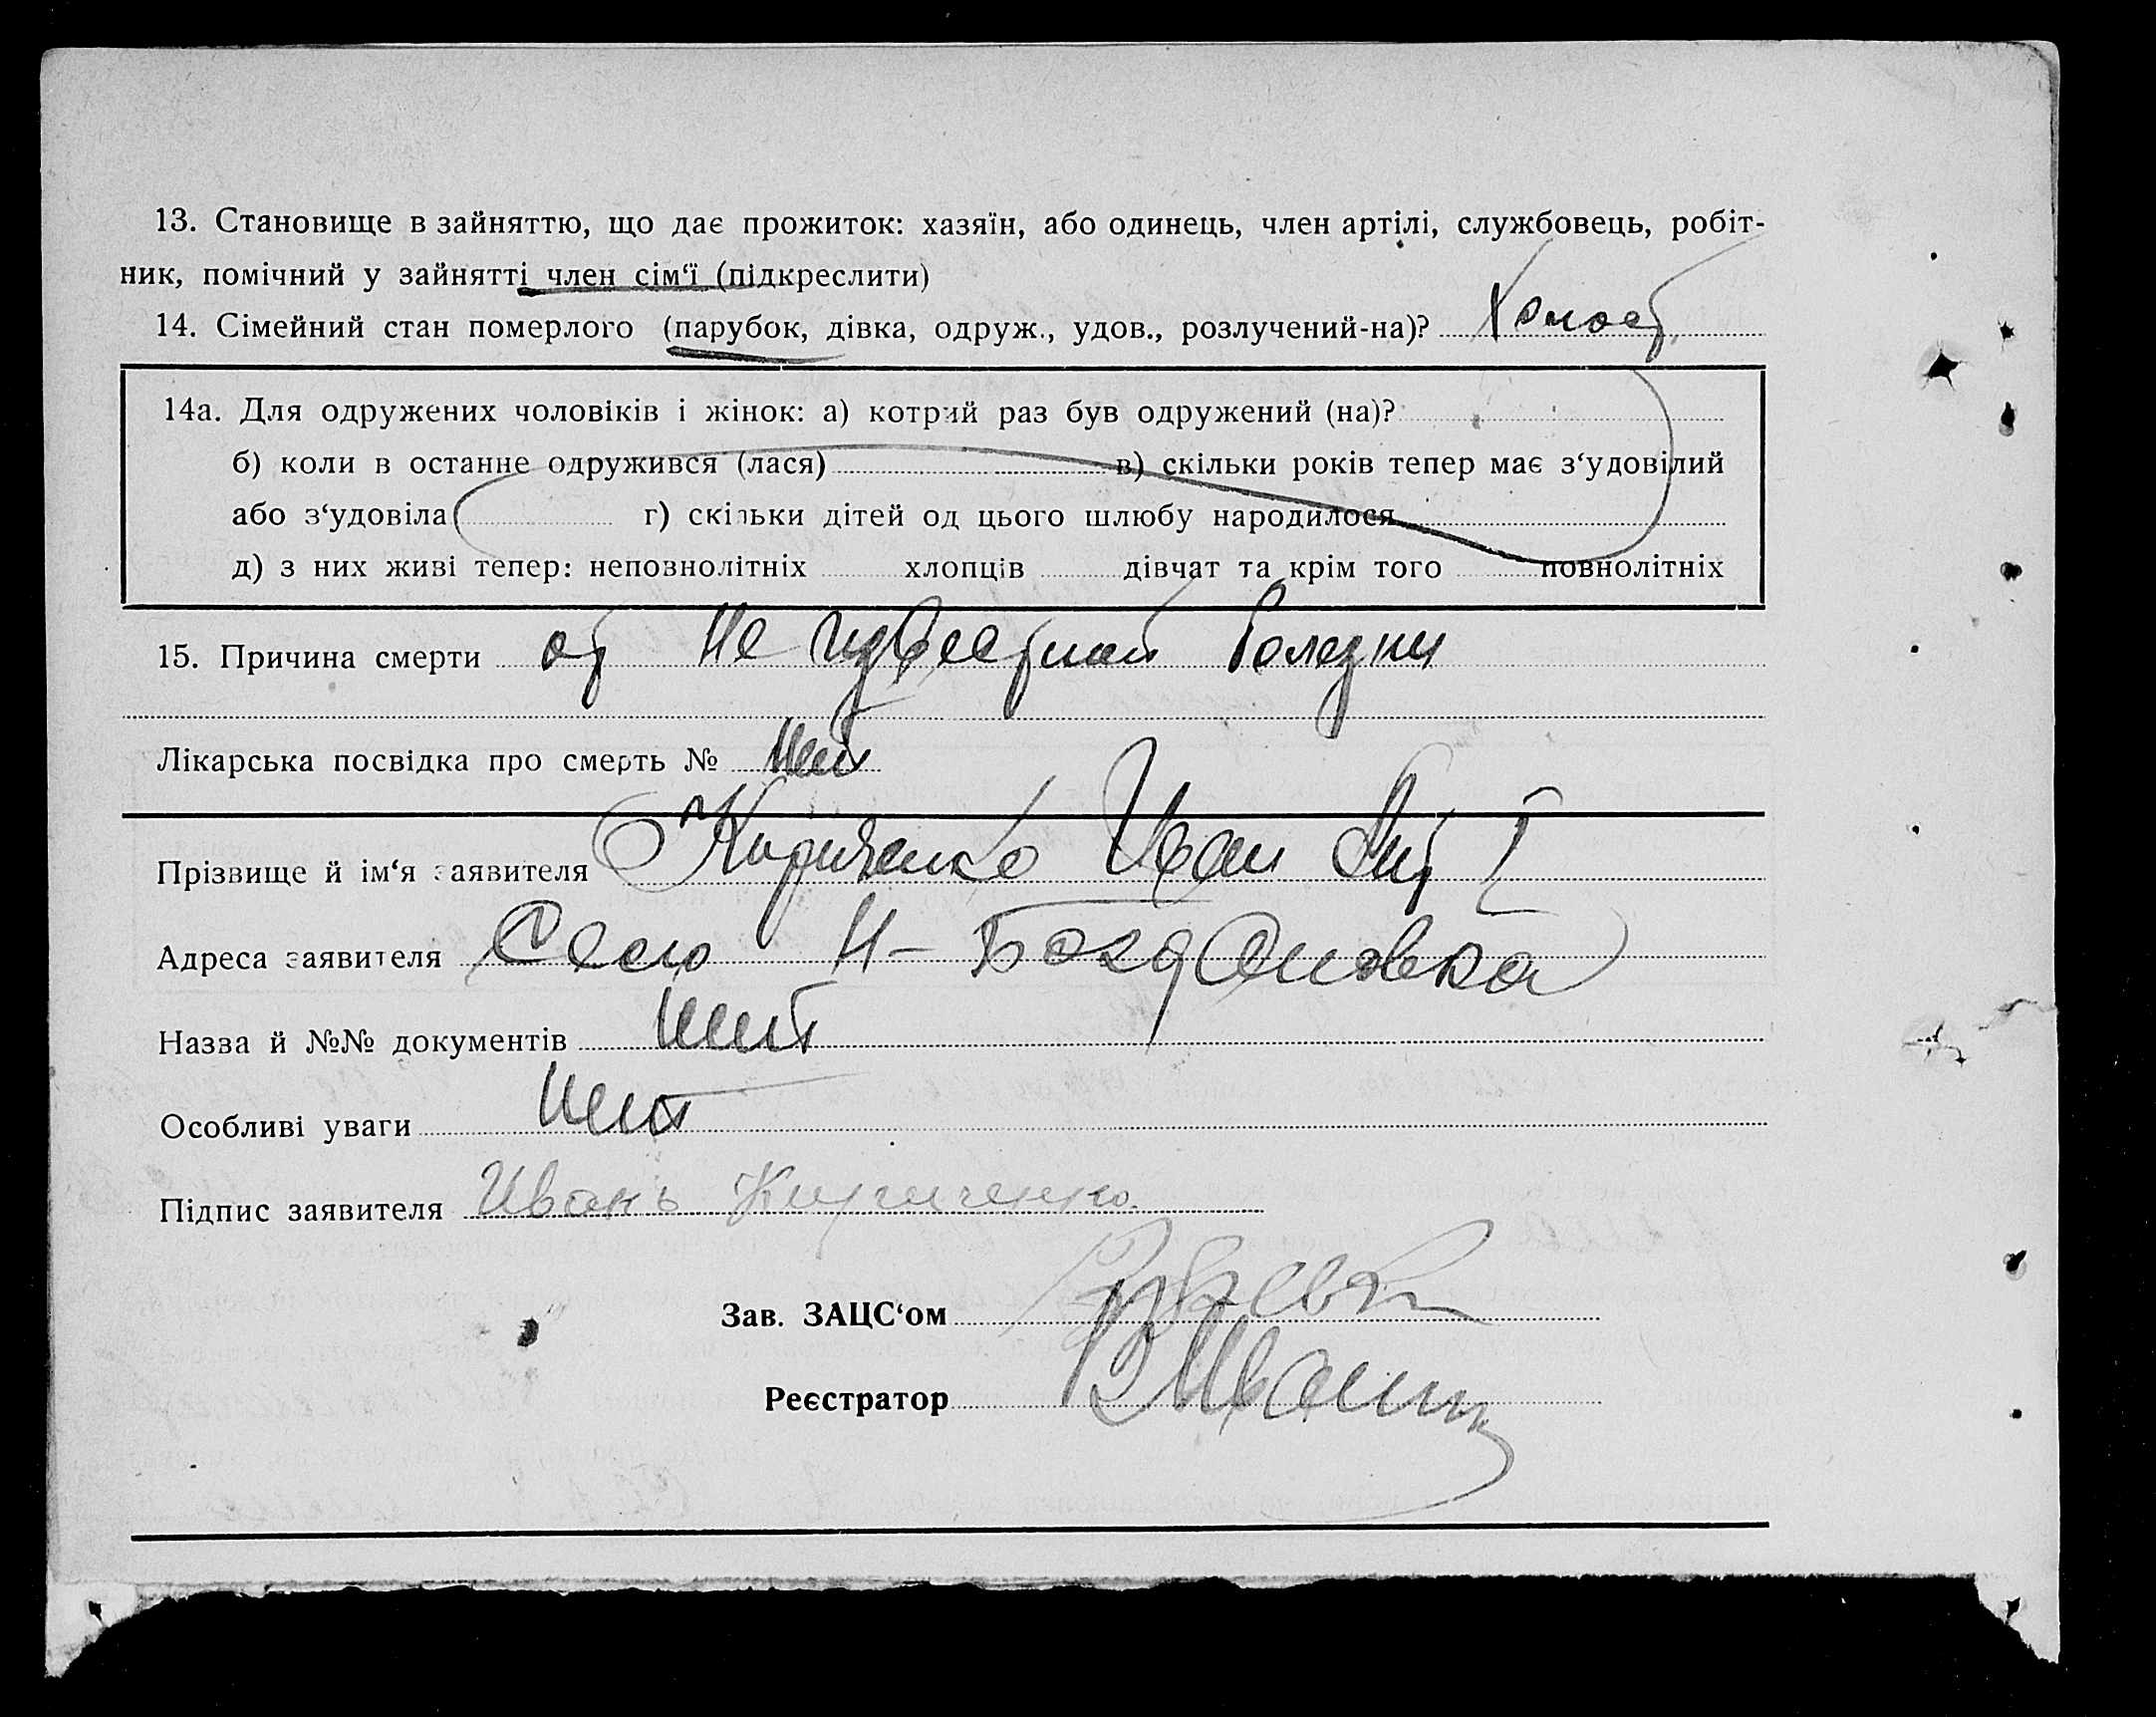 13. Становище в зайняттю, що дає прожиток: хазяїн, або одинець, член артілі, службовець, робіт-
ник, помічний у зайнятті член сім‘ї (підкреслити)
14. Сімейний стан померлого (парубок, дівка, одруж., удов., розлучений-на)? Холост
14а. Для одружених чоловіків і жінок: а) котрий раз був одружений (на)?
б) коли в останнє одружився (лася) в) скільки років тепер має з‘удовілий
або з‘удовіла г) скільки дітей од цього шлюбу народилося
д) з них живі тепер: неповнолітніх хлопців дівчат та крім того повнолітніх
15. Причина смерти от не известной болезни
Лікарська посвідка про смерть № нет
Прізвище й ім‘я заявителя Кириченко Иван
Адреса заявителя Село Н-Богдановка
Назва й №№ документів нет
Особливі уваги нет
Підпис заявителя Иванъ Кириченко
Зав. ЗАЦС‘ом
Реєстратор